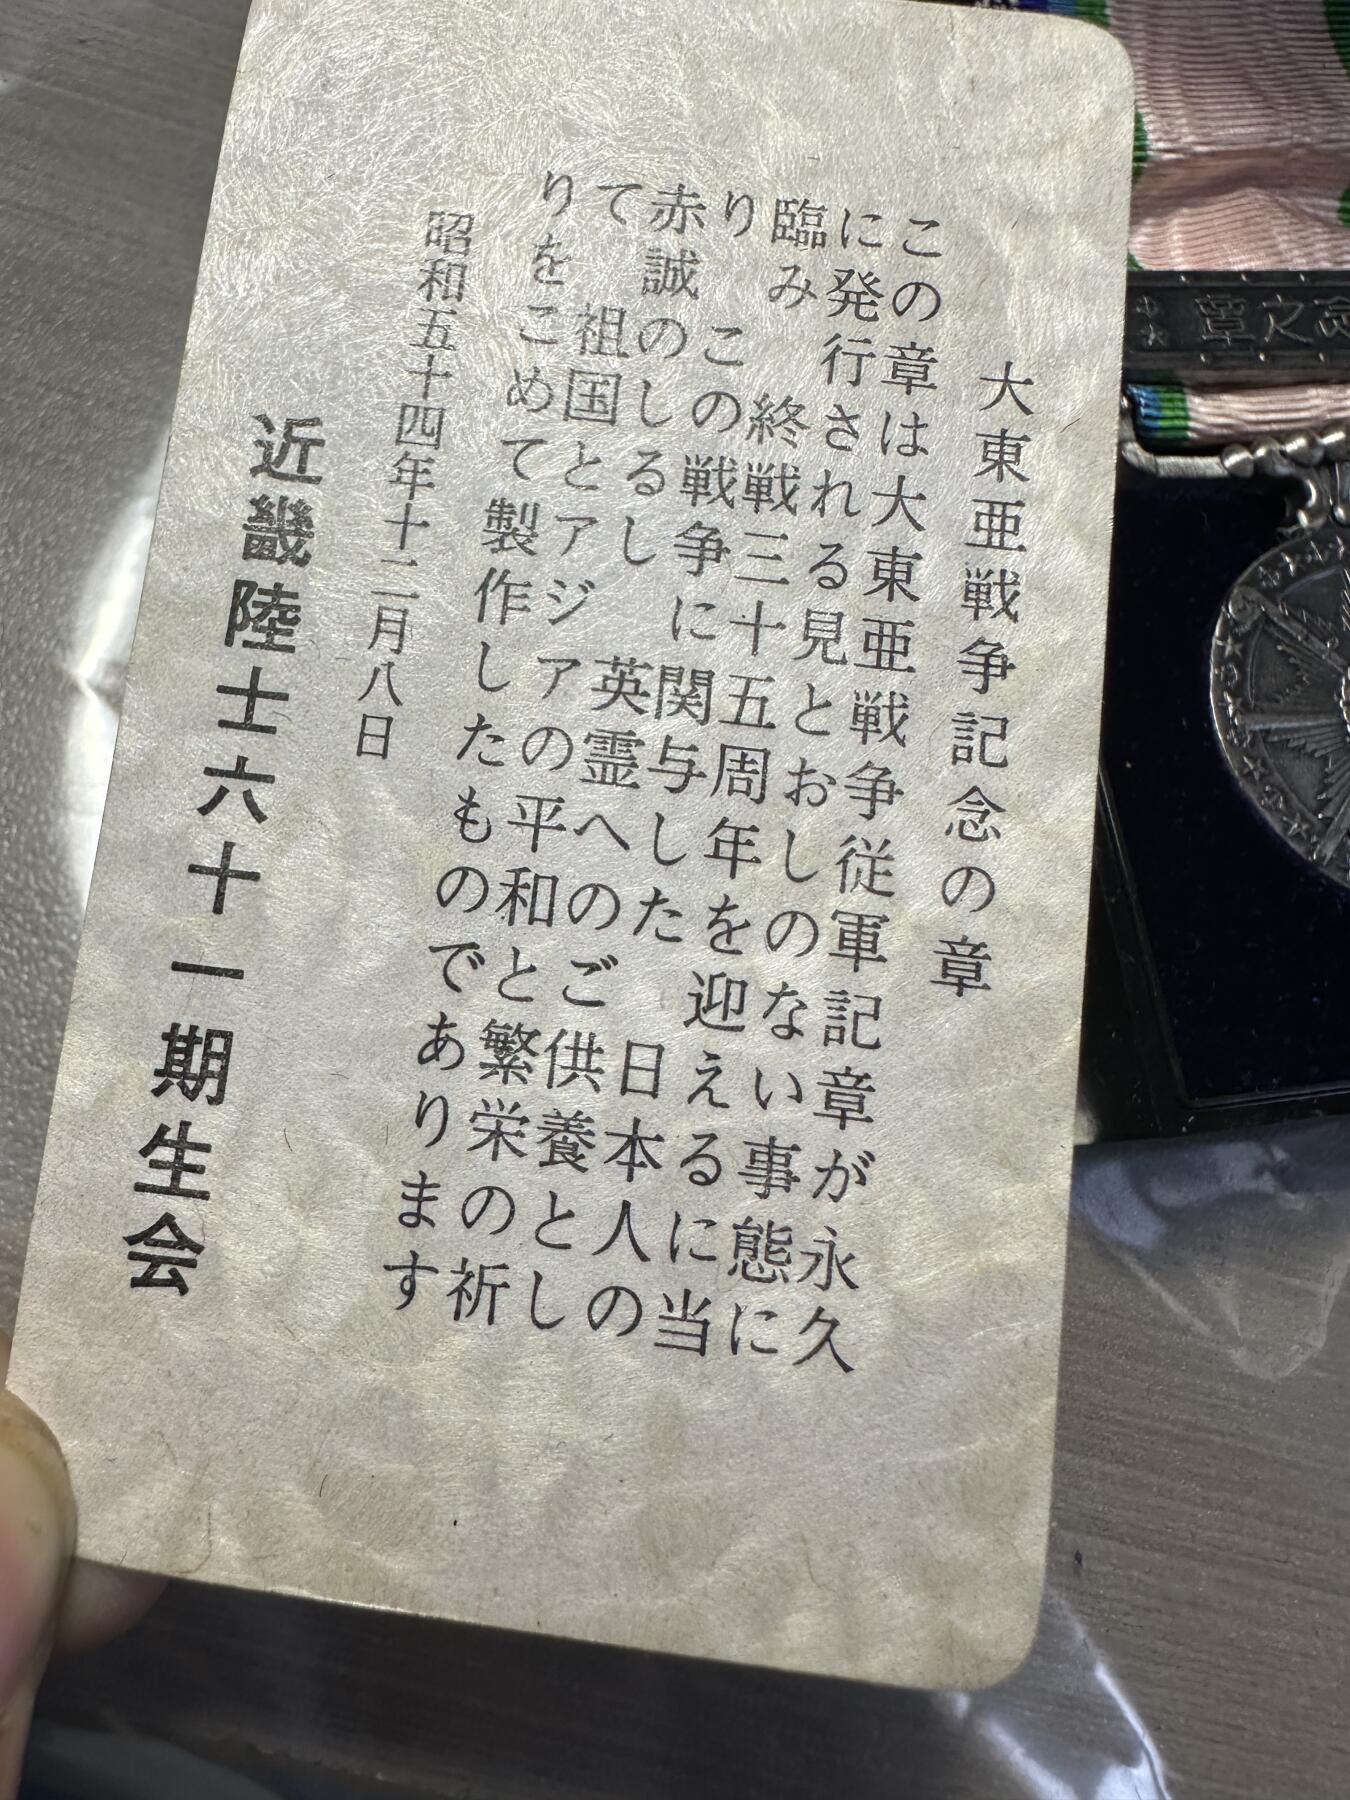 大東亜戦争記念の章
この章は大東亜戦争従軍記章が永久
に発行される見とおしのない事態に
臨み　終戦三十五周年を迎えるに当
り　この戦争に関与した　日本人の
赤誠のしるし　英霊へのご供養とし
て　祖国とアジアの平和と繁栄の祈
りをこめて製作したものであります
昭和五十四年十二月八日
近畿陸士六十一期生会
章之念